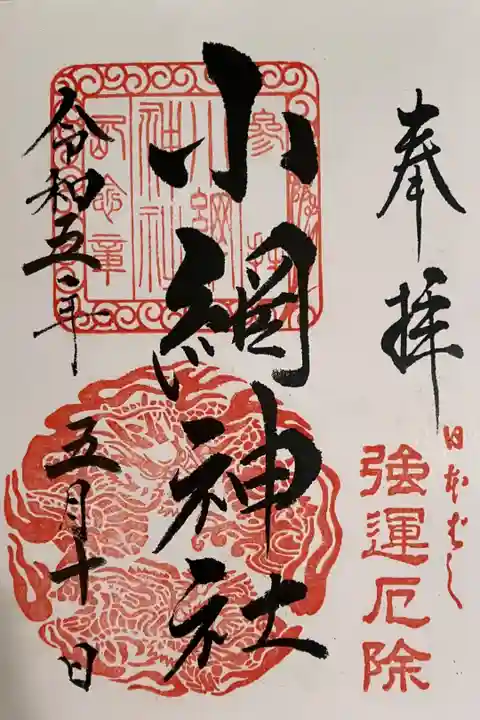 奉拝
日本ばし
強運厄除
小網神社
参拝
小網
神社
之印
令和五年
五月十日